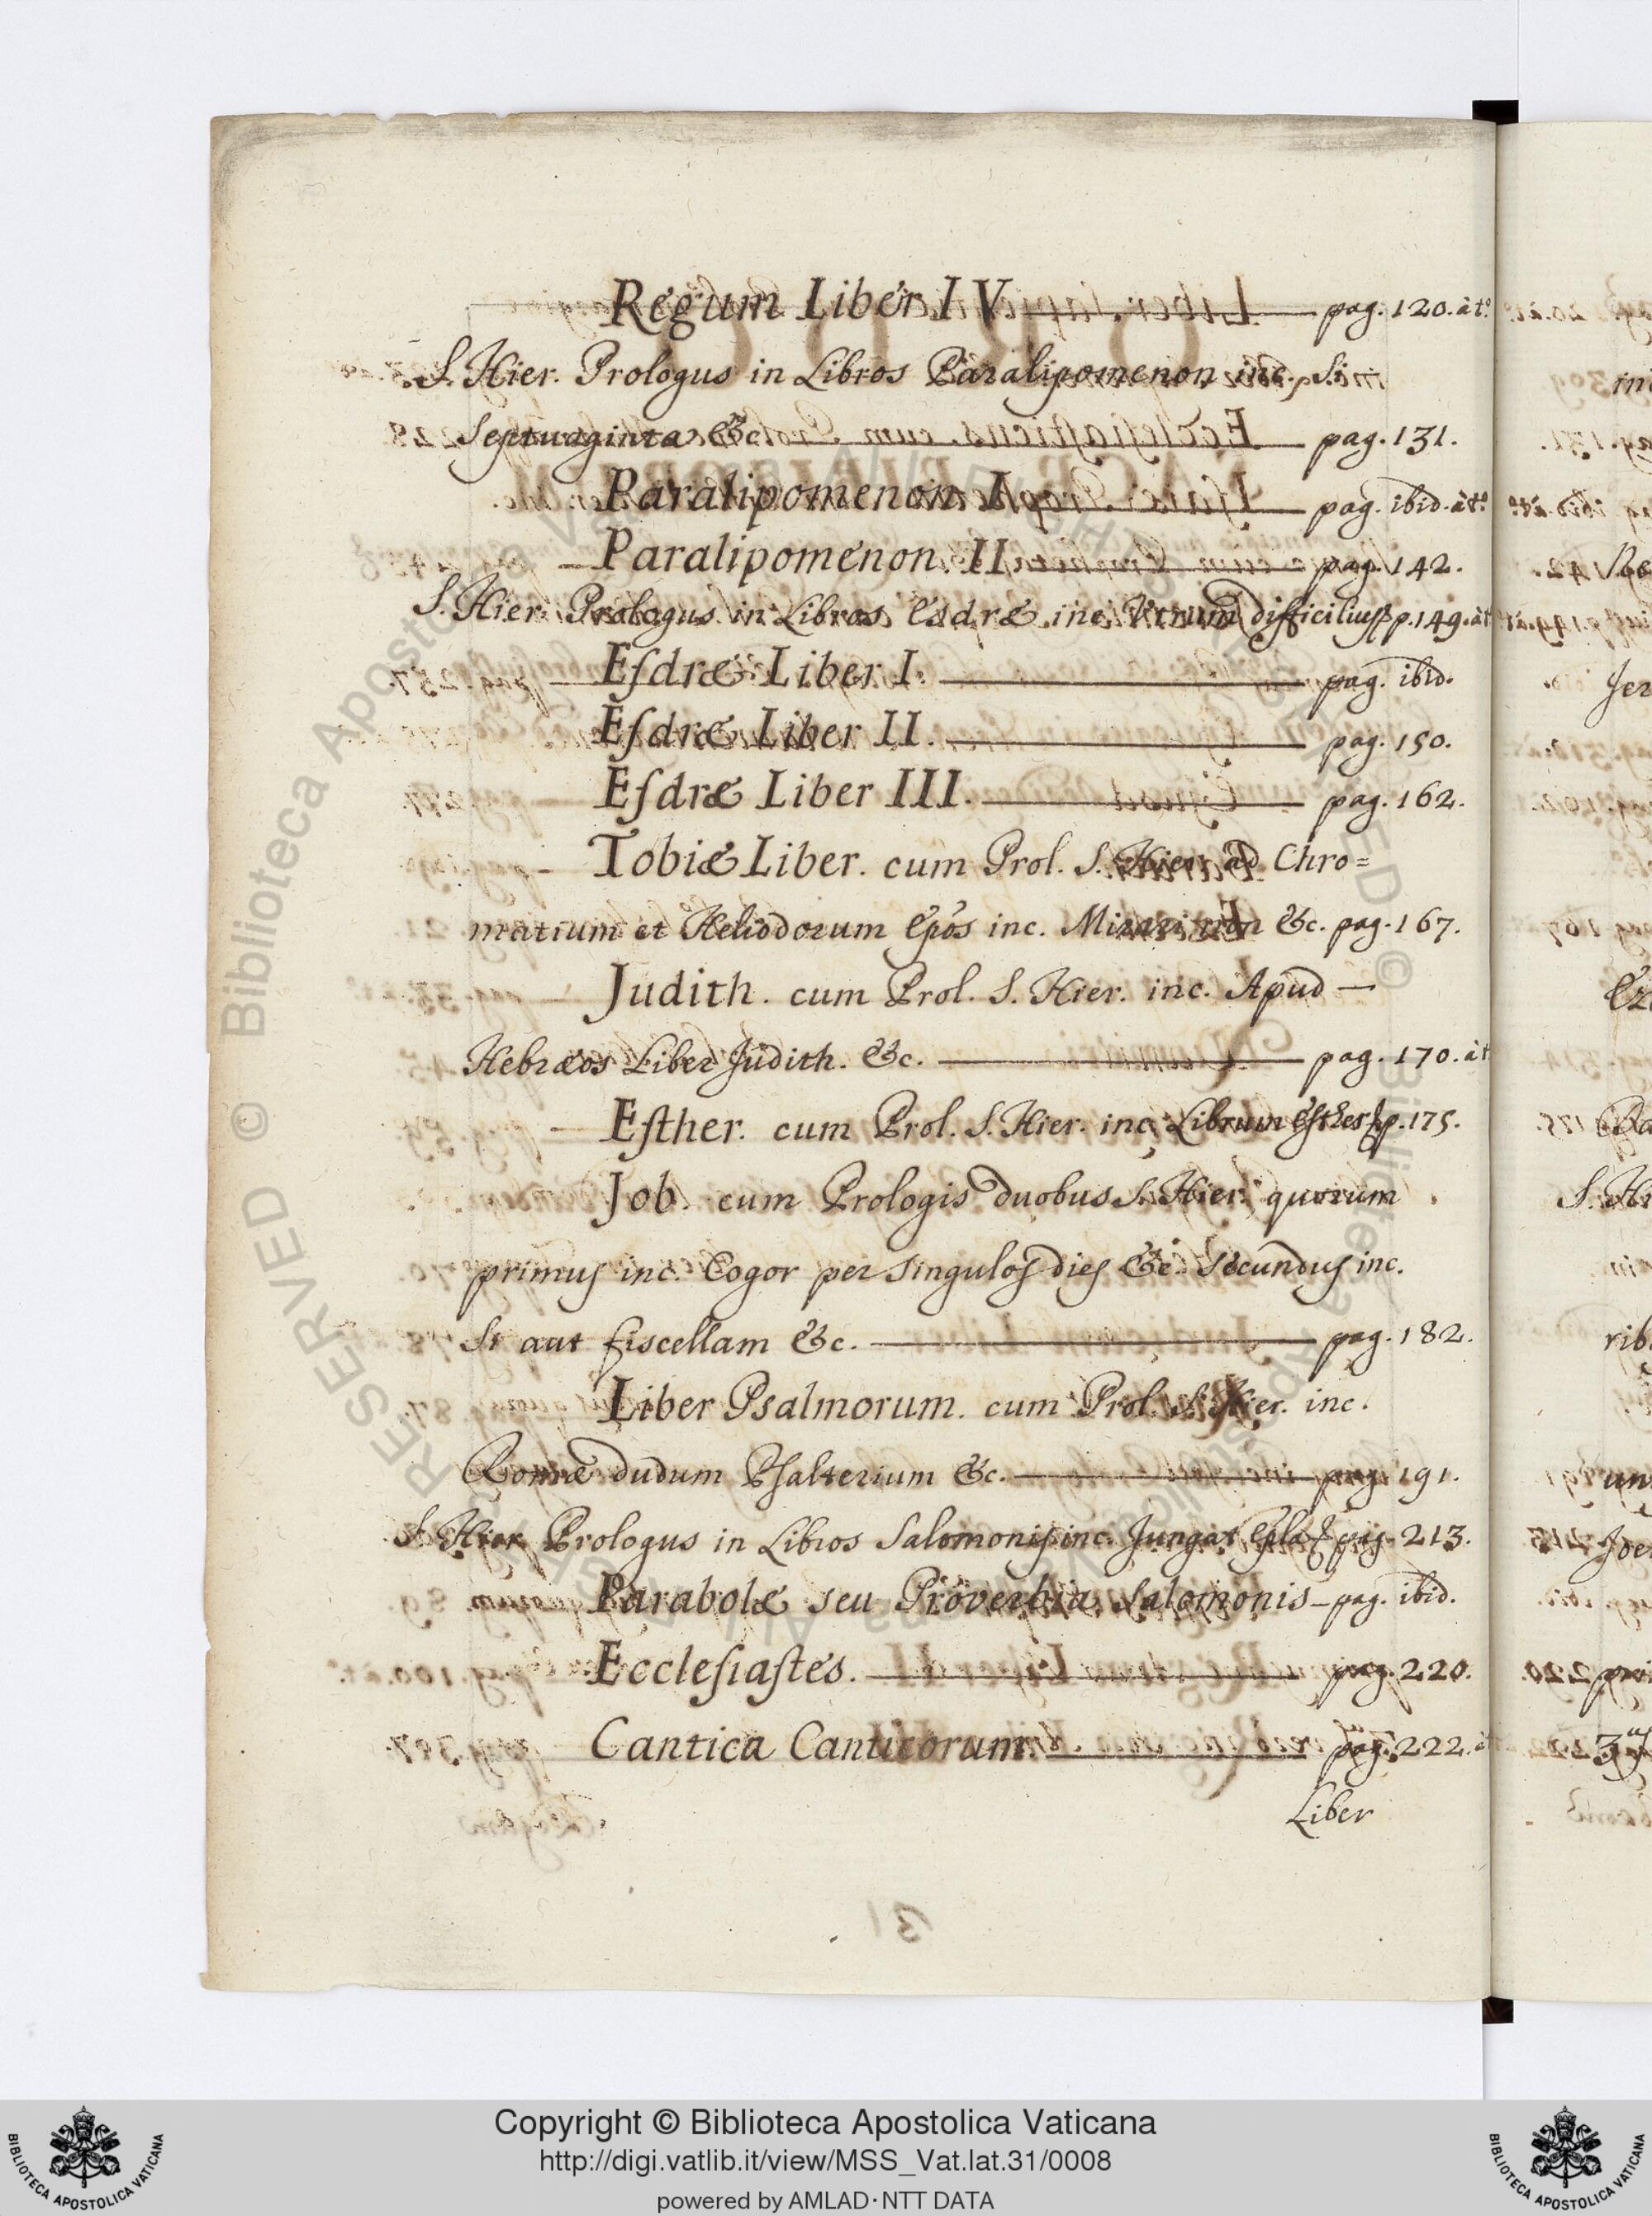 Regum Liber IV. pag. 120. à t.º
S. Hier. Prologus in Libros Paralipomenon inc. Si
Septuaginta &c. pag. 131.
Paralipomenon I. pag. ibid. à t.º
Paralipomenon II pag. 142.
S. Hier. Prologus in Libros Esdræ inc. Utrum difficilius p. 149. à t
Eſdræ Liber I. pag. ibid.
Eſdræ Liber II. pag. 150.
Eſdræ Liber III. pag. 162.
Tobiæ Liber. cum Prol. S. Hier. ad Chro=
matium et Heliodorum Epos inc. Mirari non &c. pag. 167.
Judith. cum Prol. S. Hier. inc. Apud —
Hebræos Liber Judith. &c. pag. 170. à t
Eſther. cum Prol. S. Hier. inc. Librum Eſther p. 175.
Job. cum Prologis duobus S. Hier. quorum
primus inc. Cogor per singulos dies &c. Secundus inc.
Si aut fiscellam &c. pag. 182.
Liber Psalmorum. cum Prol. S. Hier. inc.
Romæ dudum Pſalterium &c. pag. 191.
S. Hier. Prologus in Libros Salomonis inc. Jungat Epla pag. 213.
Parabolæ seu Proverbia Salomonis – pag. ibid.
Eccleſiaſtes. pag. 220.
Cantica Canticorum. pag. 222. à t
Liber
Copyright © Biblioteca Apostolica Vaticana
http://digi.vatlib.it/view/MSS_Vat.lat.31/0008
powered by AMLAD·NTT DATA
BIBLIOTECA APOSTOLICA VATICANA
BIBLIOTECA APOSTOLICA VATICANA